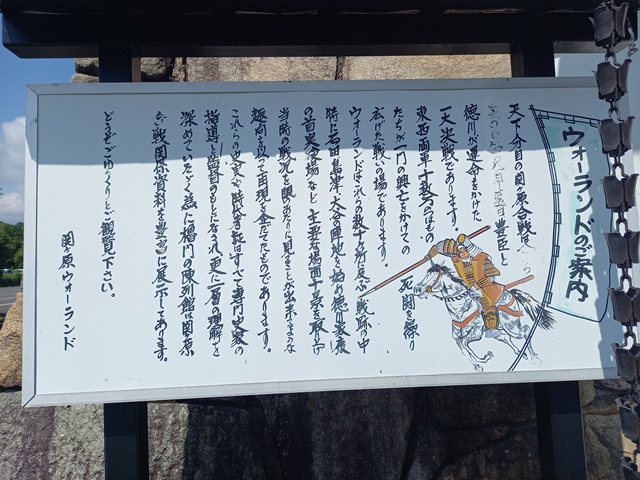 ウォーランドのご案内
天下分目の関ヶ原合戦は
豊臣と
徳川が運命をかけた
一大決戦であります。
東西両軍十数万のつわもの
たちが一門の興亡をかけての 死闘を繰り
広げた戦いの場であります。
ウォーランドはこれらの数十ヶ所に及ぶ戦跡の中
特に石田、島津、大谷陣地を始め徳川家康
の首実検場など、主要な場面十景を取り上げ
当時の戦況を眼のあたりに見ることが出来るような
趣向を以って再現を企だてたものであります。
これらの史実や時代考証はすべて専門史家の
指導と監督のもとになされ、更に一層の理解を
深めていただく為に櫓門の陳列館は関ヶ原
合戦関係資料を豊富に展示してあります。
どうぞごゆっくりとご観覧下さい。
関ヶ原ウォーランド